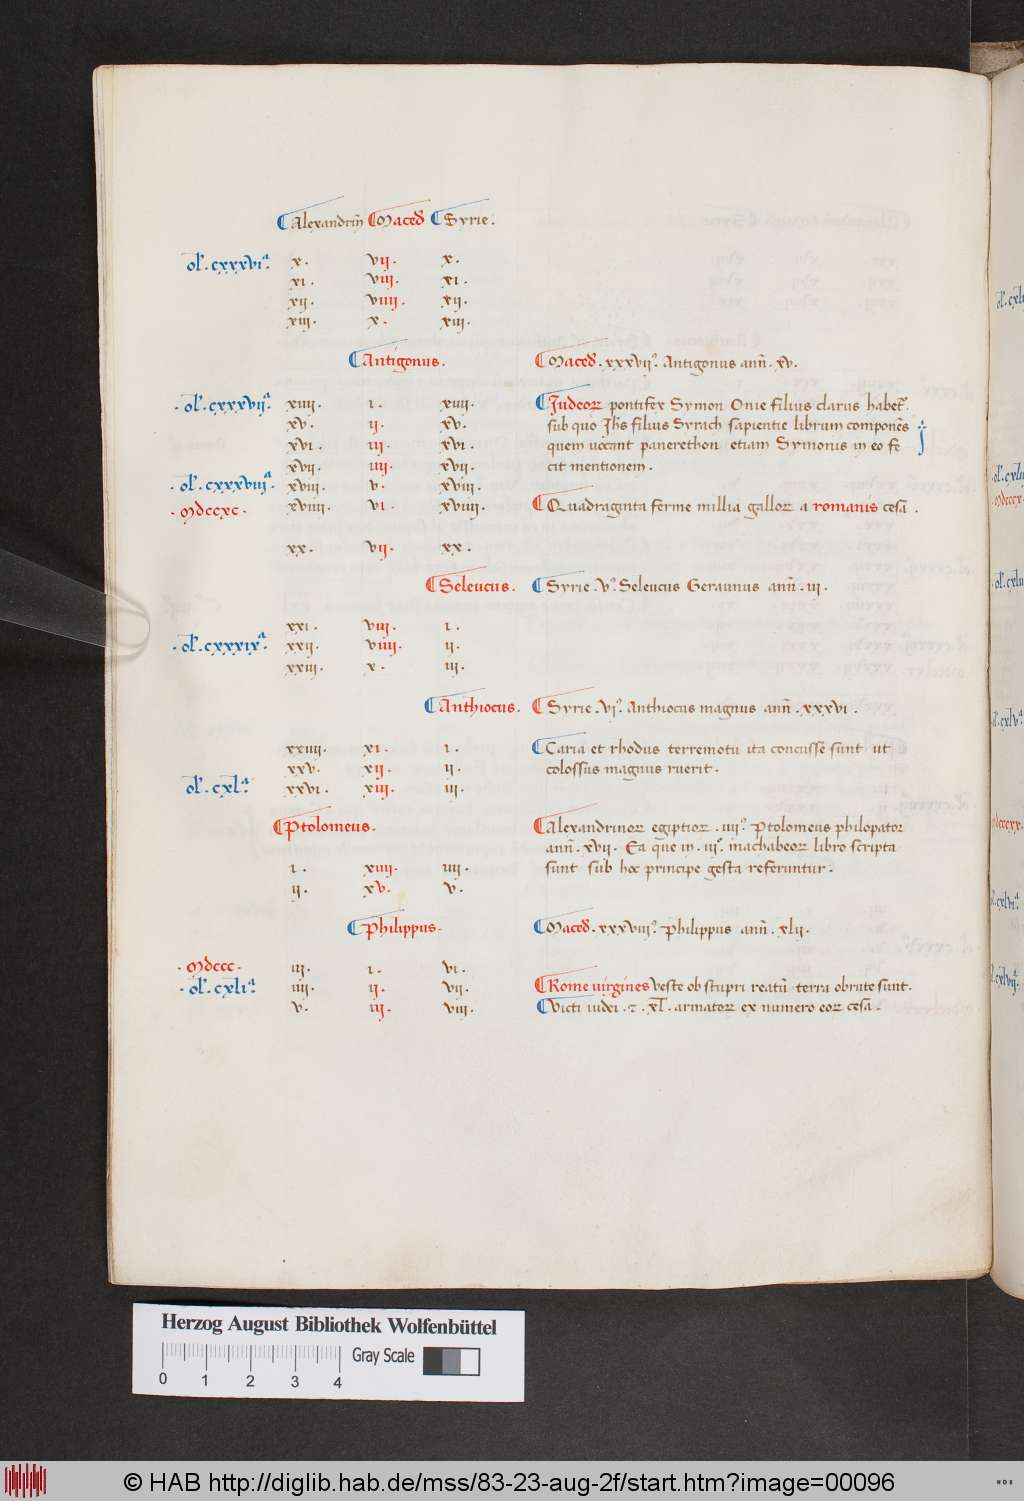 Alexandrīn Maced̄ Syrie.
ol̄. cxxxvi.ª x. vij. x.
xi. viij. xi.
xij. viiij. xij.
xiij. x. xiij.
Antigonus. Maced̄. xxxvij.º Antigonus ann̄. xv.
ol̄. cxxxvijª. xiiij. i. xiiij. Judeoꝝ pontifex Symon Onie filius clarus habet̄.
xv. ij. xv. sub quo Jhs filius Syrach sapientie librum componēs
xvi. iij. xvi. quem uocant panerethon etiam Symonis in eo fe
xvij. iiij. xvij. cit mentionem.
ol̄. cxxxviijª. xviij. v. xviij.
mdccxc. xviiij. vi. xviiij. Quadraginta ferme millia galloꝝ a romanis cesa.
xx. vij. xx.
Seleucus. Syrie. v.º Seleucus Geraunus ann̄. iij.
xxi. viij. i.
ol̄. cxxxixª. xxij. viiij. ij.
xxiij. x. iij.
Anthiocus. Syrie. vi.º Anthiocus magnus ann̄. xxxvi.
xxiiij. xi. i. Caria et rhodus terremotu ita concusse sunt ut
xxv. xij. ij. colossus magnus ruerit.
ol̄. cxl.ª xxvi. xiij. iij.
Ptolomeus. Alexandrinoꝝ egiptioꝝ. iiij.º Ptolomeus philopator
ann̄. xvij. Ea que in. iij.º machabeoꝝ libro scripta
i. xiiij. iiij. sunt sub hoc principe gesta referuntur.
ij. xv. v.
Philippus. Maced̄. xxxviij.º Philippus ann̄. xlij.
mdccc. iij. i. vi.
ol̄. cxli.ª iiij. ij. vij. Rome uirgines veste ob stupri reatū terra obrute sunt.
v. iij. viij. Victi iudei. ⁊. xl̄. armatoꝝ ex numero eoꝝ cesa.
Herzog August Bibliothek Wolfenbüttel
Gray Scale
0 1 2 3 4
© HAB http://diglib.hab.de/mss/83-23-aug-2f/start.htm?image=00096